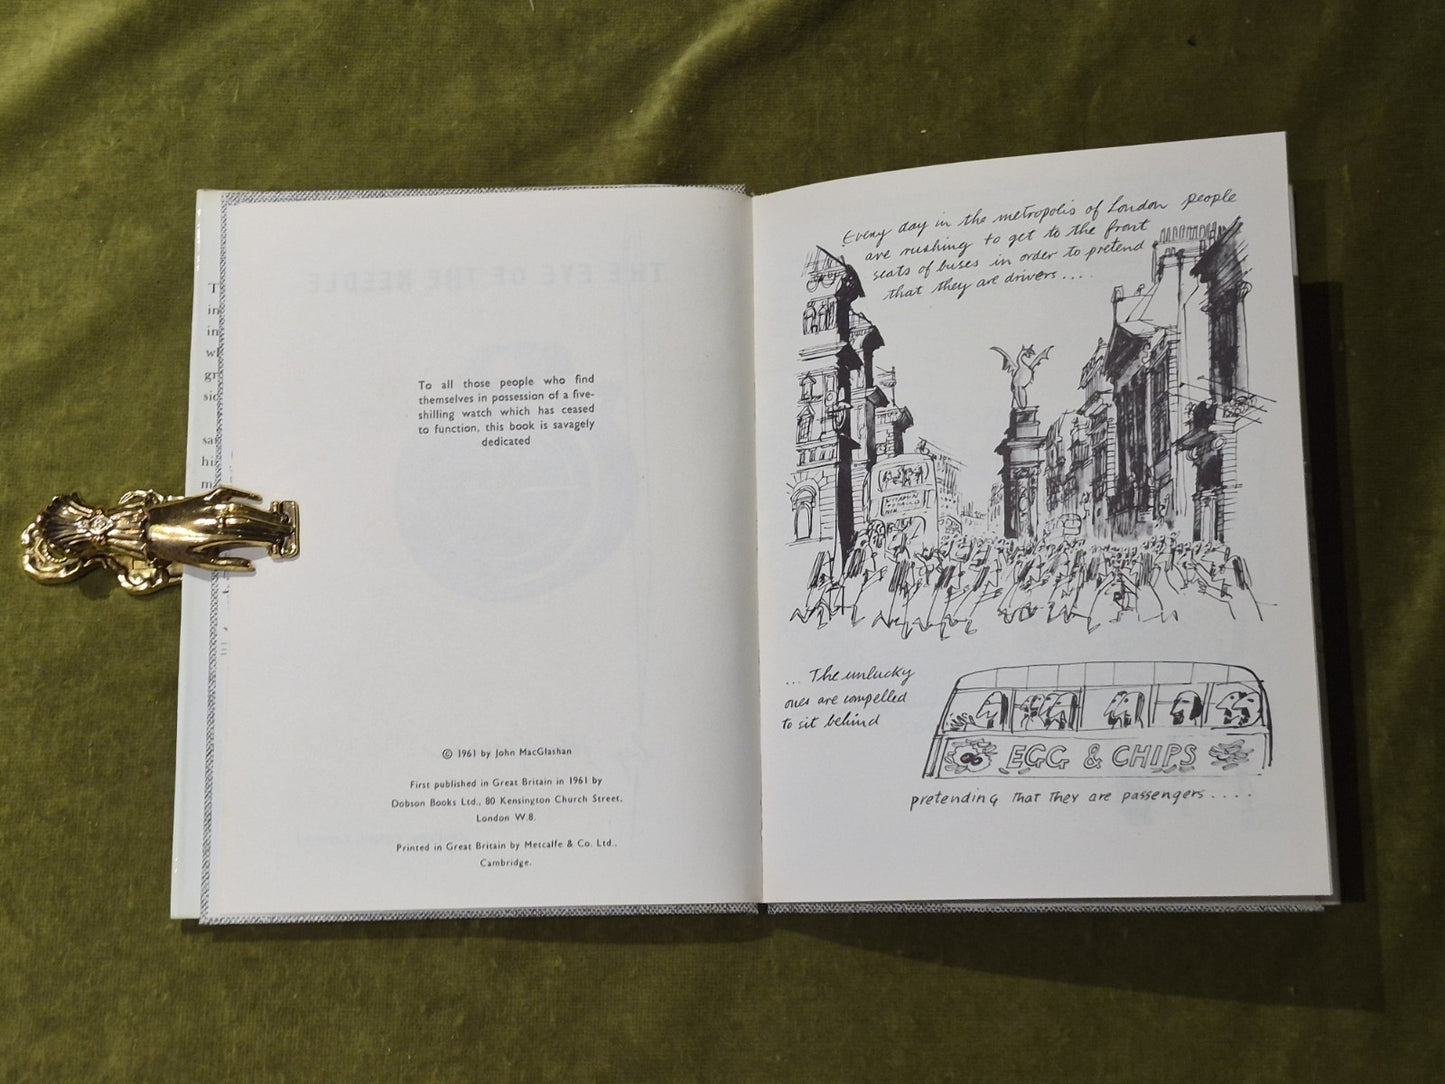 THE EYE OF THE NEEDLE
To all those people who find
themselves in possession of a five-
shilling watch which has ceased
to function, this book is savagely
dedicated
© 1961 by John MacGlashan
First published in Great Britain in 1961 by
Dobson Books Ltd., 80 Kensington Church Street,
London W.8.
Printed in Great Britain by Metcalfe & Co. Ltd.,
Cambridge.
Every day in the metropolis of London people
are rushing to get to the front
seats of buses in order to pretend
that they are drivers....
... The unlucky
ones are compelled
to sit behind
EGG & CHIPS
pretending that they are passengers....